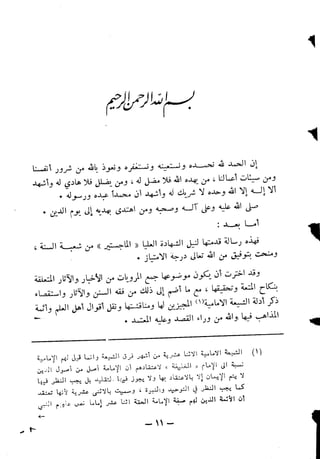 بسم الله الرحمن الرحيم
إن الحمد لله نحمده ونستعينه ونستغفره ونعوذ بالله من شرور أنفسنا
ومن سيئات أعمالنا ، من يهده الله فلا مضل له ، ومن يضلل فلا هادي له وأشهد
ألا إله إلا الله وحده لا شريك له وأشهد أن محمدا عبده ورسوله •
صلى الله عليه وعلى آله وصحبه ومن اهتدى بهديه إلى يوم الدين •
أما بعد :
فهذه رسالة قدمتها لنيل الشهادة العليا « الماجستير » من شعبة السنة ،
ومنحت بتوفيق من الله تعالى درجة الامتياز •
وقد اخترت أن يكون موضوعها جمع المرويات من الأخبار والآثار المتعلقة
بنكاح المتعة وتحقيقها ، ثم ما أضم إلى ذلك من فقه السنن والآثار واستقصاء
ذكر أدلة الشيعة الامامية(١) المجيزين لها ومناقشتها ونقل أقوال أهل العلم وأئمة
المذاهب فيها والله من وراء القصد وعليه المعتمد •
(١) الشيعة الامامية الاثنا عشرية من أشهر فرق الشيعة وانما قيل لهم الامامية
نسبة الى « الامام » الخليفة ، لاعتقادهم أن الامامة أصل من أصول الدين
لا يتم الايمان إلا بالاعتقاد بها ولا يجوز فيها التقليد بل يجب النظر فيها
كما يجب النظر في التوحيد والنبوة ، وسميت بالاثنى عشرية لأنها تعتقد
أن الأئمة الذين لهم صفة الامامة الحقة اثنا عشر إماما نص عليهم النبي
←
- ١١ -